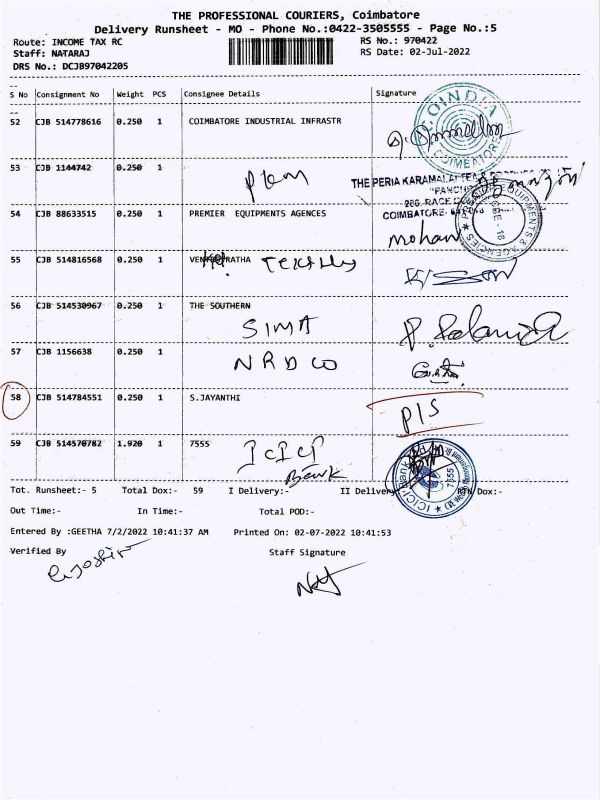 THE PROFESSIONAL COURIERS, Coimbatore
Delivery Runsheet - MO - Phone No.:0422-3505555 - Page No.:5
Route: INCOME TAX RC RS No.: 970422
Staff: NATARAJ RS Date: 02-Jul-2022
DRS No.: DCJB97042205
S No Consignment No Weight PCS Consignee Details Signature
COINDIA
COIMBATORE
52 CJB 514778616 0.250 1 COIMBATORE INDUSTRIAL INFRASTR
53 CJB 1144742 0.250 1
THE PERIA KARAMALAI TEA &
"PANCH
286, RACE CO
COIMBATORE-
54 CJB 88633515 0.250 1 PREMIER EQUIPMENTS AGENCIES mohan
PREMIER EQUIPMENTS & AGENCIES
CBE - 18
55 CJB 514816568 0.250 1
56 CJB 514530967 0.250 1 THE SOUTHERN
SIMA
57 CJB 1156638 0.250 1 NRDCO
58 CJB 514784551 0.250 1 S.JAYANTHI P/S
59 CJB 514570782 1.920 1 7555 ICICI
Bank
ICICI Bank
Tot. Runsheet:- 5 Total Dox:- 59 I Delivery:- II Delivery:- RTN Dox:-
Out Time:- In Time:- Total POD:-
Entered By :GEETHA 7/2/2022 10:41:37 AM Printed On: 02-07-2022 10:41:53
Verified By Staff Signature